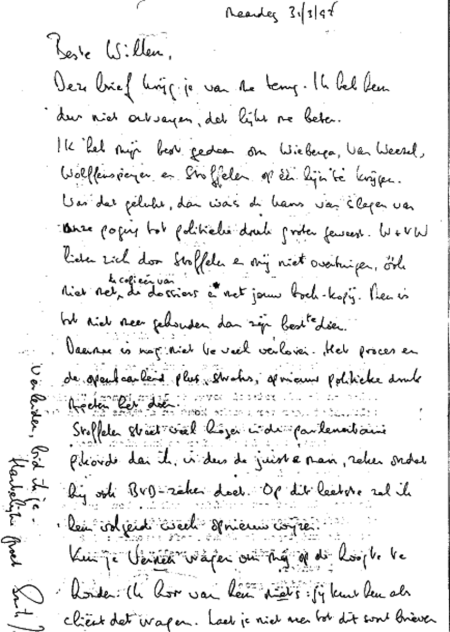 Maandag 31/3/97
Beste Willem,
Deze brief krijg je van me terug. Ik heb hem
dus niet ontvangen, dat lijkt me beter.
Ik heb mijn best gedaan om Wiebenga, Van Weezel,
Wolffensperger en Stoffelen op één lijn te krijgen.
Was dat gelukt, dan was de kans van slagen van
onze poging tot politieke druk groter geweest. W + VW
lieten zich door Stoffelen en mij niet overtuigen, óók
niet met de kopieën van de dossiers en met jouw boek-kopij. Men is
tot niet meer gehouden dan zijn best te doen.
Daarmee is nog niet te veel verloren. Het proces en
de openbaarheid plus, straks, opnieuw politieke druk
moeten het doen.
Stoffelen staat veel hoger in de parlementaire
pikorde dan ik, is dus de juiste man, zeker omdat
hij ook BVD-zaken doet. Op dit laatste zal ik
hem volgende week opnieuw wijzen.
Kun je vragen om mij op de hoogte te
houden. Ik hoor van hem niets. Jij kunt hem als
cliënt dat vragen. Laat je niet meer tot dit soort brieven
verleiden, bid ik je.
Hartelijke groet